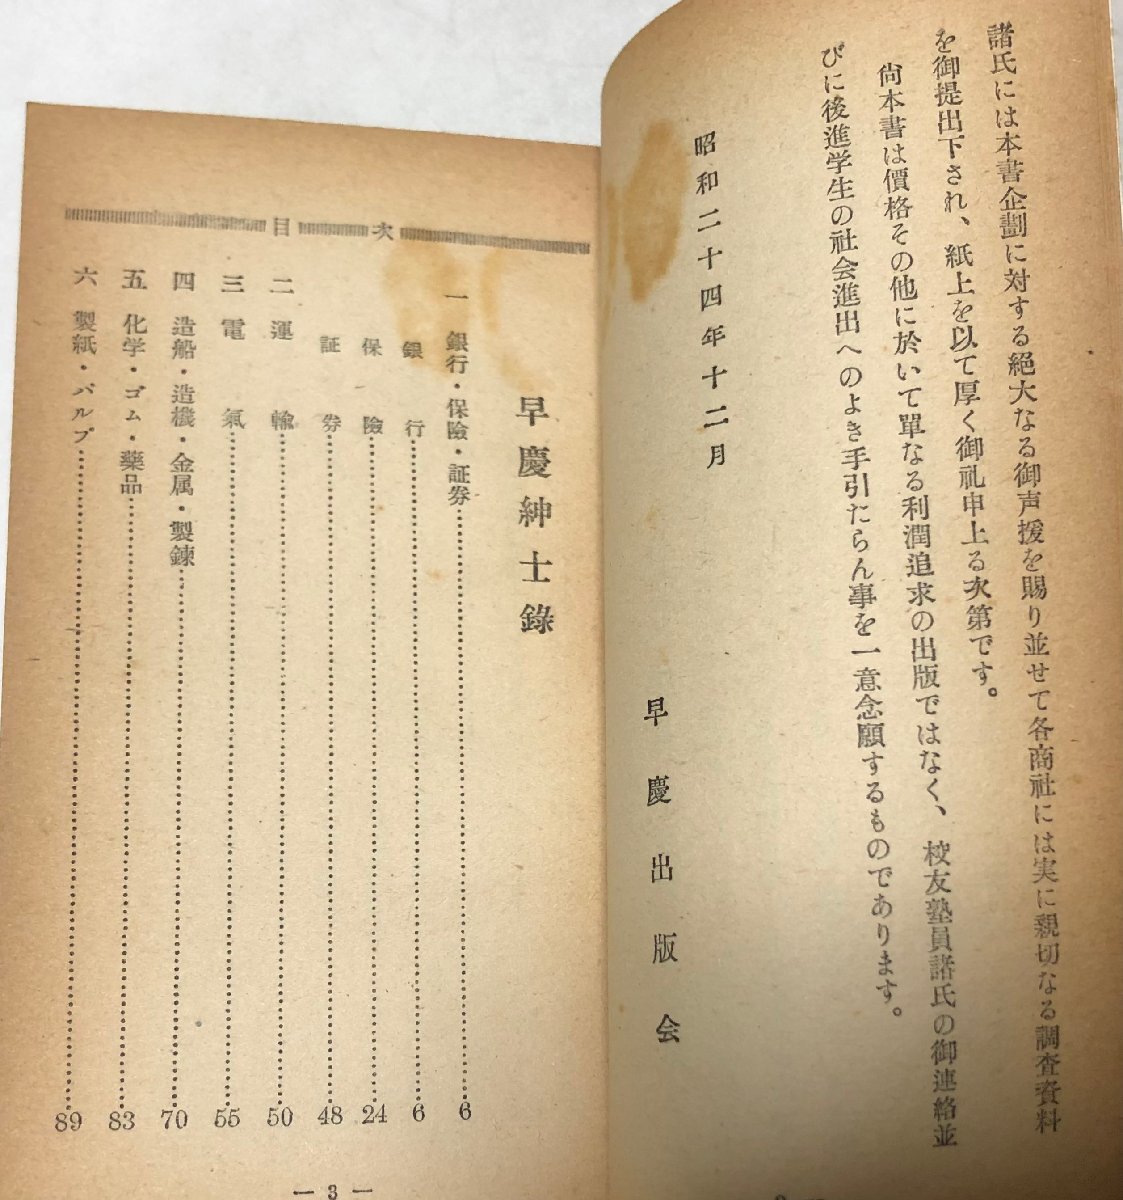 諸氏には本書企劃に対する絶大なる御声援を賜り並せて各商社には実に親切なる調査資料
を御提出下され、紙上を以て厚く御礼申上る次第です。
尙本書は價格その他に於いて單なる利潤追求の出版ではなく、校友塾員諸氏の御連絡並
びに後進学生の社会進出へのよき手引たらん事を一意念願するものであります。
昭和二十四年十二月
早慶出版会
目次
早慶紳士錄
一 銀行・保險・証券…………6
銀行…………6
保險…………24
証券…………48
二 運輸…………50
三 電氣…………55
四 造船・造機・金属・製鍊…………70
五 化学・ゴム・藥品…………83
六 製紙・パルプ…………89
— 3 —